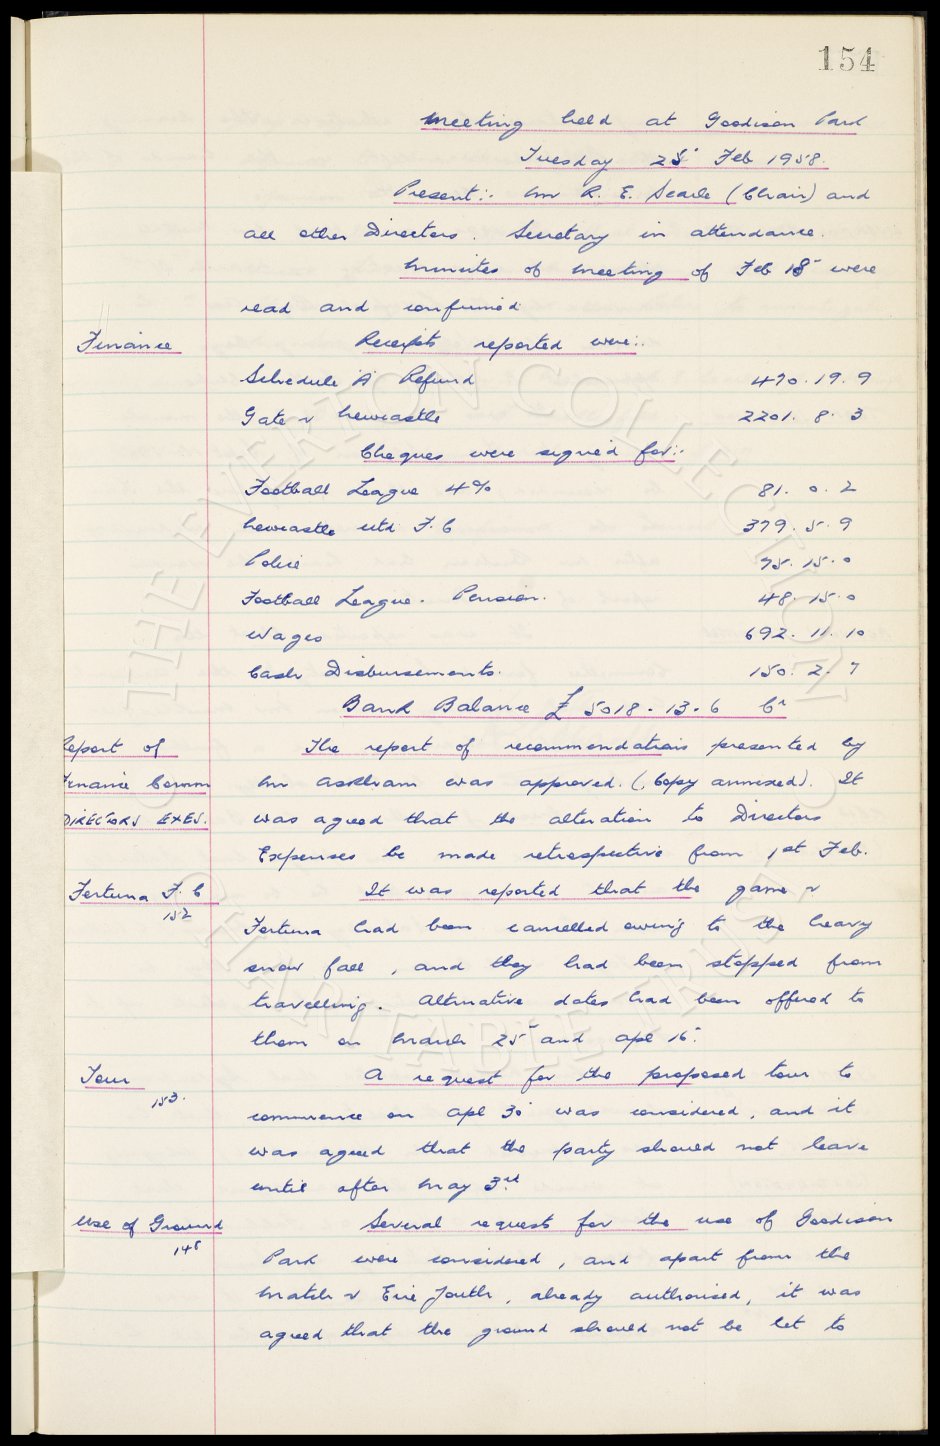 154
Meeting held at Goodison Park
Tuesday 25" Feb 1958.
Present:- Mr R. E. Searle (Chair) and
all other Directors. Secretary in attendance.
Minutes of Meeting of Feb 18" were
read and confirmed
Finance
Receipts reported were:-
Schedule 'A' Refund 470. 19. 9
Gate v Newcastle 2201. 8. 3
Cheques were signed for:-
Football League 4% 81. 0. 2
Newcastle Utd F.C 379. 5. 9
Police 75. 15. 0
Football League. Pension. 48. 15. 0
Wages 692. 11. 10
Cash Disbursements. 150. 2. 7
Bank Balance £5018. 13. 6 Cr
Report of
Finance Comm
DIRECTORS EXES.
The report of recommendations presented by
Mr Askham was approved. (Copy annexed). It
was agreed that the alteration to Directors
Expenses be made retrospective from 1st Feb.
Fortuna F.C
152
It was reported that the game v
Fortuna had been cancelled owing to the heavy
snow fall, and they had been stopped from
travelling. Alternative dates had been offered to
them on March 25" and Apl 16".
Tour
153.
A request for the proposed tour to
commence on Apl 30" was considered, and it
was agreed that the party should not leave
until after May 3rd
Use of Ground
148
Several requests for the use of Goodison
Park were considered, and apart from the
Match v Eire Youth, already authorised, it was
agreed that the ground should not be let to
THE EVERTON COLLECTION
CHARITABLE TRUST